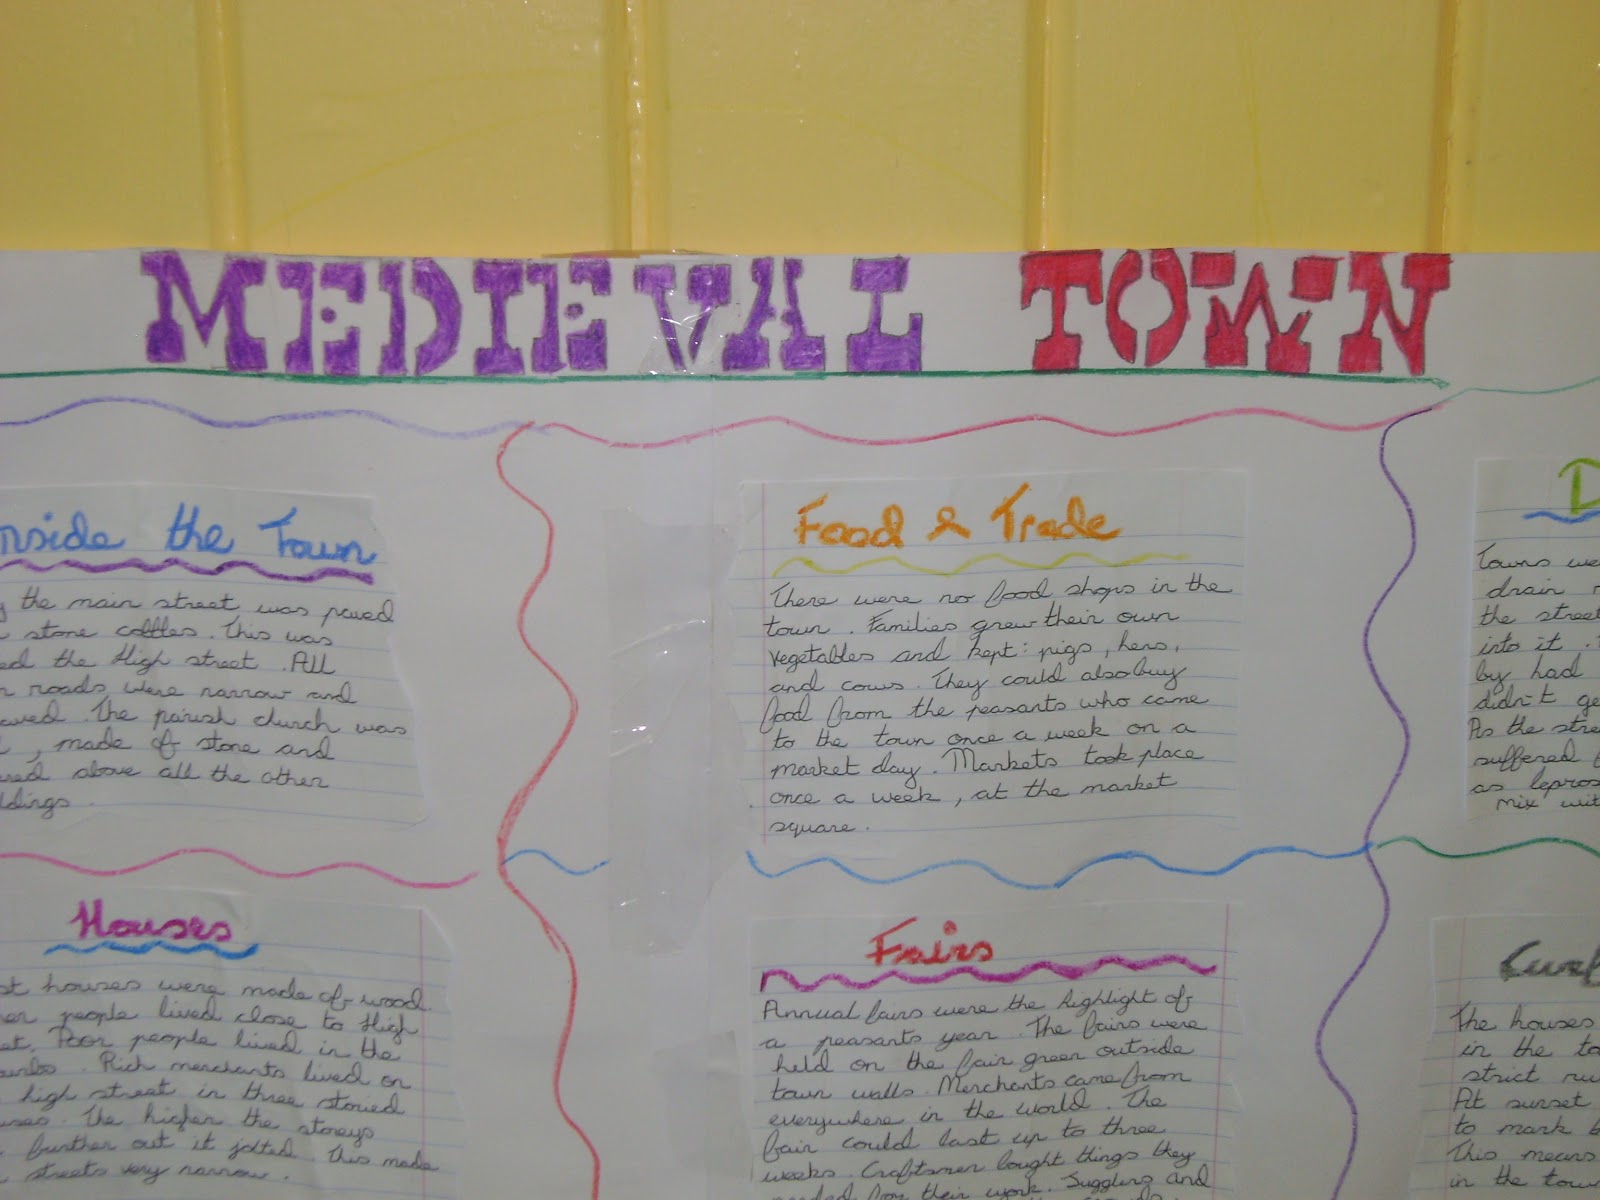 MEDIEVAL TOWN
Inside the Town
the main street was paved
stone cobbles. This was
the High street. All
roads were narrow and
The parish church was
, made of stone and
above all the other
Food & Trade
There were no food shops in the
town. Families grew their own
vegetables and kept: pigs, hens,
and cows. They could also buy
food from the peasants who came
to the town once a week on a
market day. Markets took place
once a week, at the market
square.
D
Towns we
drain
the street
into it.
by had
didn't ge
As the stre
suffered f
as lepros
mix wit
Houses
houses were made of wood.
people lived close to High
Poor people lived in the
Rich merchants lived on
high street in three storied
The higher the storeys
further out it jolted. This made
streets very narrow.
Fairs
Annual fairs were the highlight of
a peasants year. The fairs were
held on the fair green outside
town walls. Merchants came from
everywhere in the world. The
fair could last up to three
weeks. Craftsmen bought things they
needed for their work. Juggling and
Curf
The houses
in the to
strict ru
At sunset
to mark b
This means
in the tow